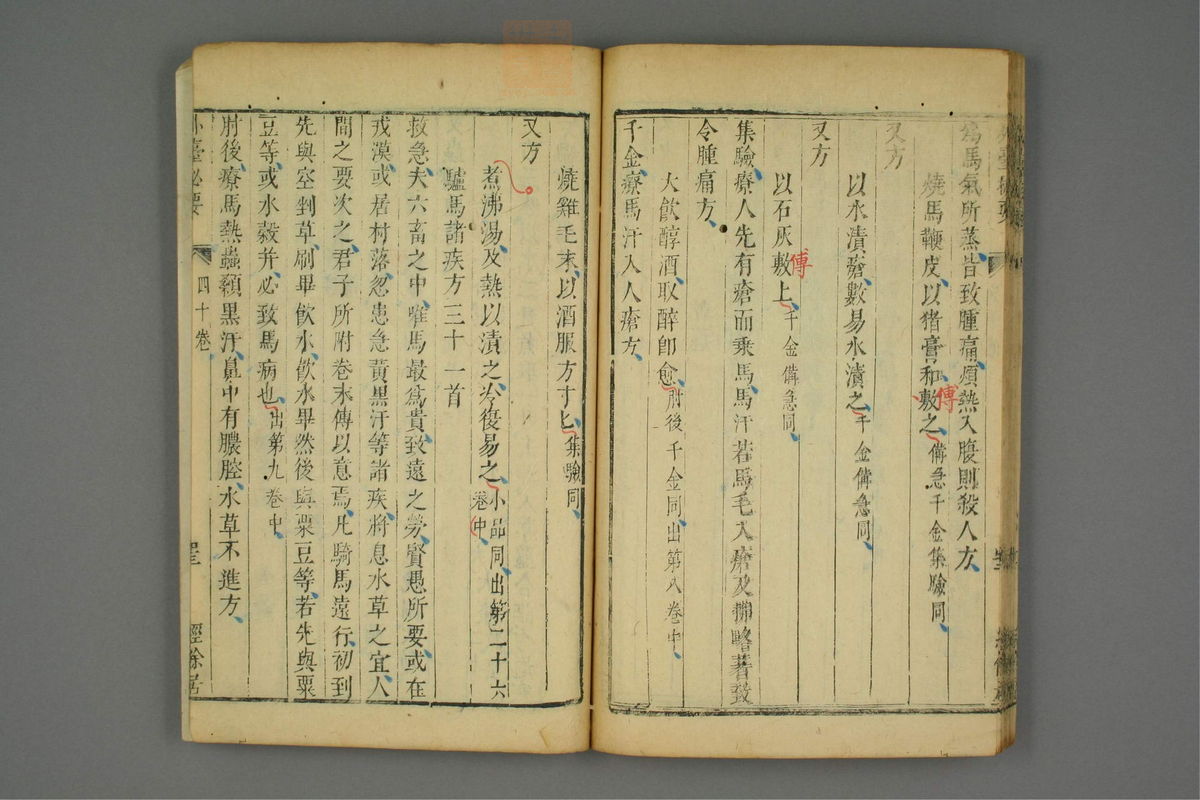 為馬氣所蒸皆致腫痛煩熱入腹則殺人方
燒馬鞭皮以猪膏和敷之備急千金集驗同
傅
又方
以水漬瘡數易水漬之千金備急同
又方
以石灰敷上千金備急同
傅
集驗療人先有瘡而乘馬馬汗若馬毛入瘡及
令腫痛方
大飲醇酒取醉即愈肘後千金同出第八卷中
千金療馬汗入人瘡方
燒雞毛末以酒服方寸匕集驗同
又方
煮沸湯及熱以漬之冷復易之小品同出第二十六
卷中
驢馬諸疾方三十一首
救急夫六畜之中唯馬最為貴致遠之勞賢愚所要或在
戎漠或居村落忽患急黃黑汗等諸疾將息水草之宜人
間之要次之君子所附卷末傳以意焉凡騎馬遠行初到
先與空剉草刷畢飲水飲水畢然後與粟豆等若先與粟
豆等或水穀并必致馬病也出第九卷中
肘後療馬熱蟲顙黑汗鼻中有膿腔水草不進方
外臺必要 四十卷 經餘居